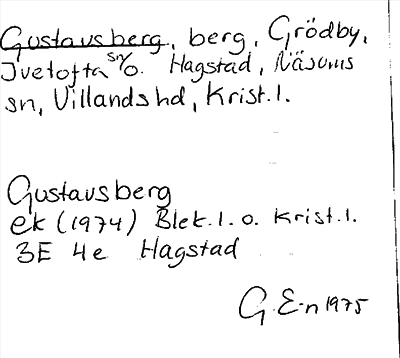 Gustavsberg, berg, Grödby,
Ivetofta sn o. Hagstad, Näsums
sn, Villands hd, Krist. l.
Gustavsberg
ek (1974) Blek. l. o. Krist. l.
3E 4e Hagstad
G. E-n 1975